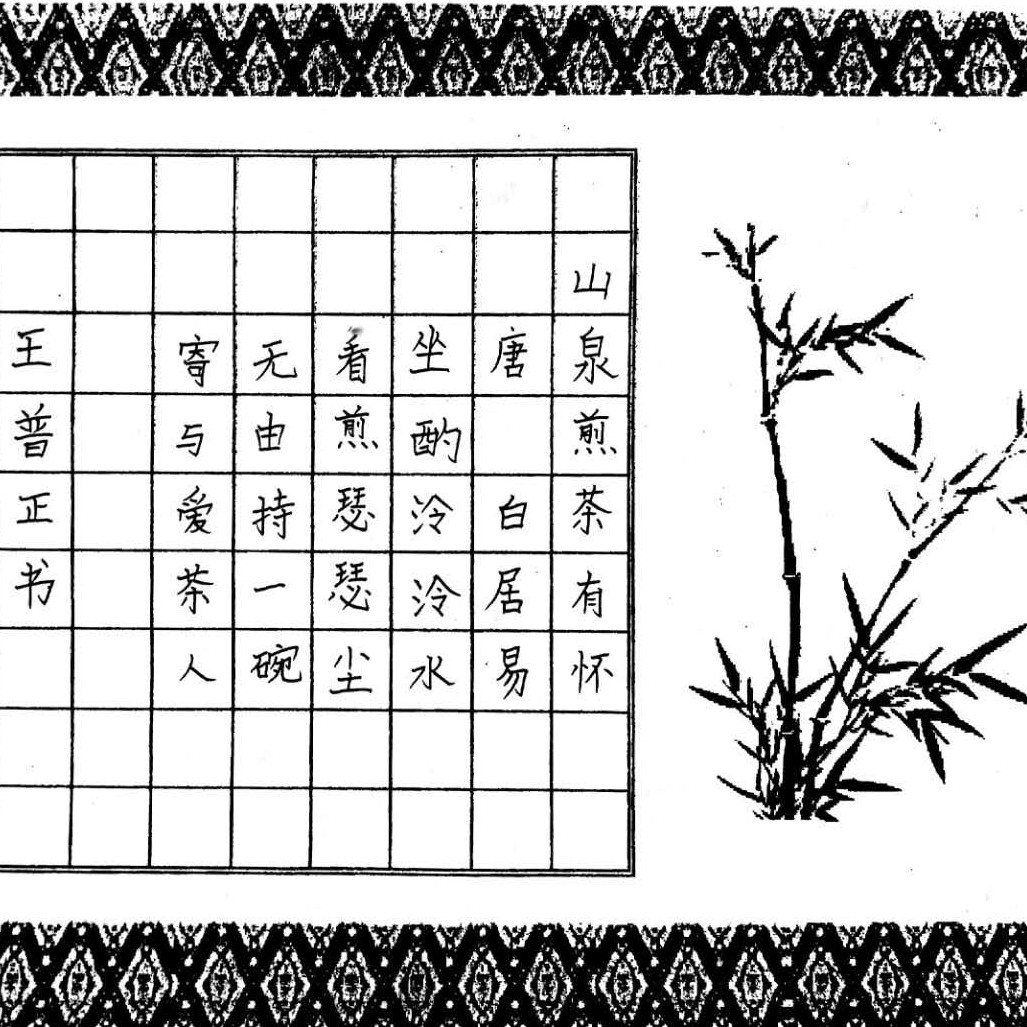 山泉煎茶有怀
唐 白居易
坐酌泠泠水
看煎瑟瑟尘
无由持一碗
寄与爱茶人
王普正书